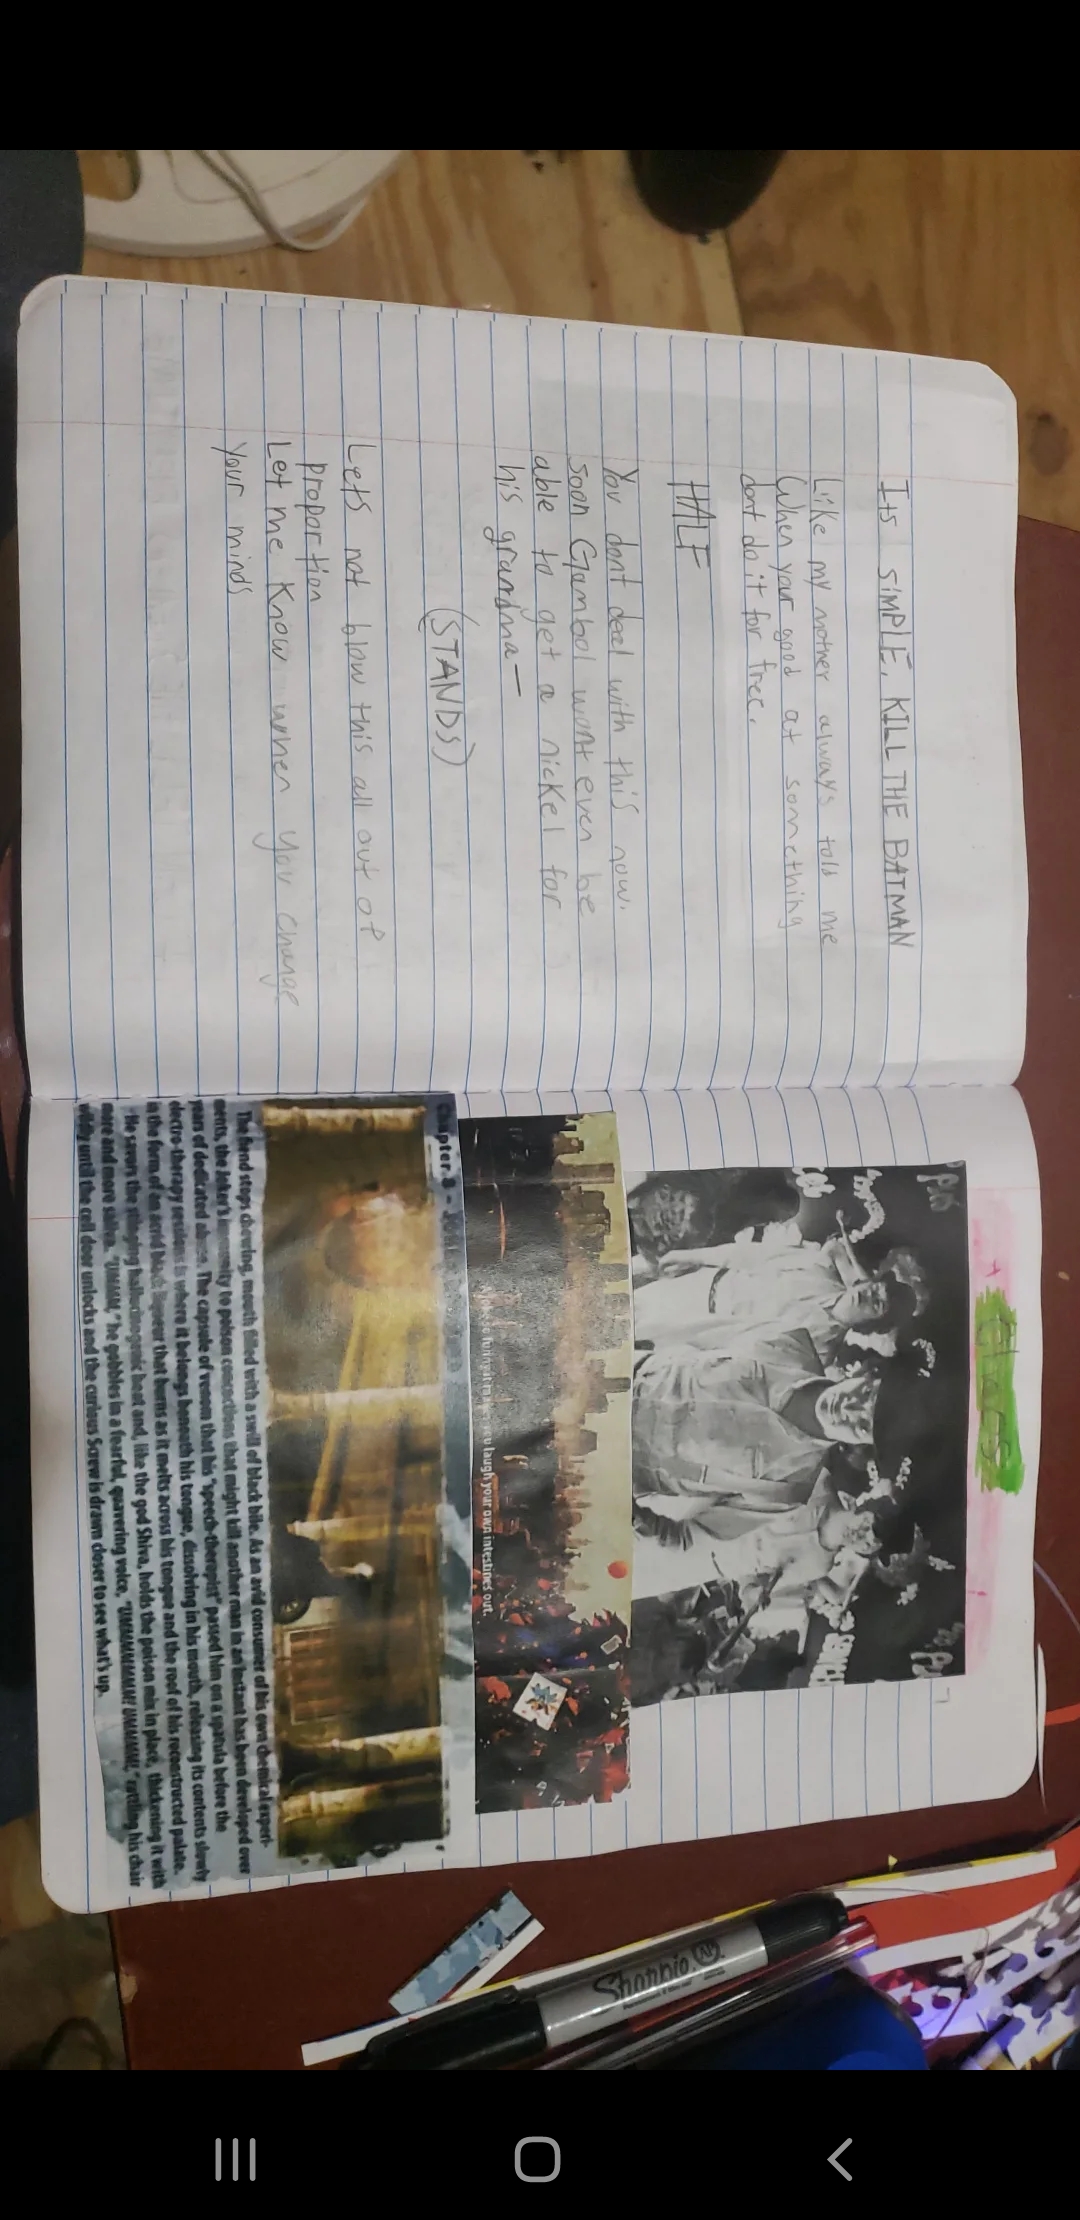 ITS SIMPLE, KILL THE BATMAN
Like my mother always told me
When your good at something
dont do it for free.
HALF
You dont deel with this now.
soon Gambol wont even be
able to get a nickel for
his grandma—
(STANDS)
Lets not blow this all out of
proportion
Let me know when you change
your minds
laugh your own intestines out.
Chapter
The fiend stops chewing, mouth filled with a swill of black bile. As an avid consumer of his own chemical experi-
ments, the Joker's immunity to poison concoctions that might kill another man in an instant has been developed over
years of dedicated abuse. The capsule of venom that his "speech-therapist" passed him on a spatula before the
electro-therapy session is where it belongs beneath his tongue, dissolving in his mouth, releasing its contents slowly
in the form of an acrid black liqueur that burns as it melts across his tongue and the roof of his reconstructed palate.
He savors the stinging hallucinogenic heat and, like the god Shiva, holds the poison mix in place, thickening it with
more and more saliva. "UMMM," he gobbles in a fearful, quavering voice, rattling his chair
until the cell door unlocks and the curious Screw is drawn closer to see what's up.
Sharpie